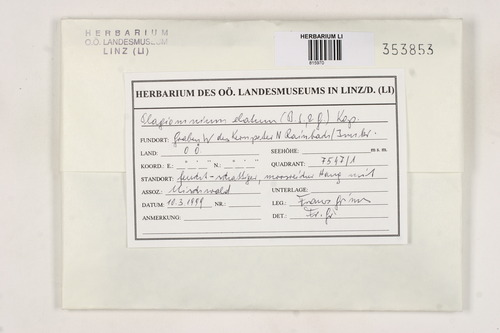 HERBARIUM
O.Ö. LANDESMUSEUM
LINZ (LI)
HERBARIUM LI
353853
HERBARIUM DES OÖ. LANDESMUSEUMS IN LINZ/D. (LI)
Plagiomnium elatum (B. & S.) Kop.
FUNDORT: Graben W des N
LAND: O.Ö. SEEHÖHE: m s. m.
KOORD.: E.: ° ' " N.: ° ' " QUADRANT: 7547/1
STANDORT: feucht-schattiger, moosreicher Hang mit
ASSOZ.: Mischwald UNTERLAGE:
DATUM: 10.3.1999 NR.: LEG.: Franz Grims
ANMERKUNG: DET.: Fr. Gr